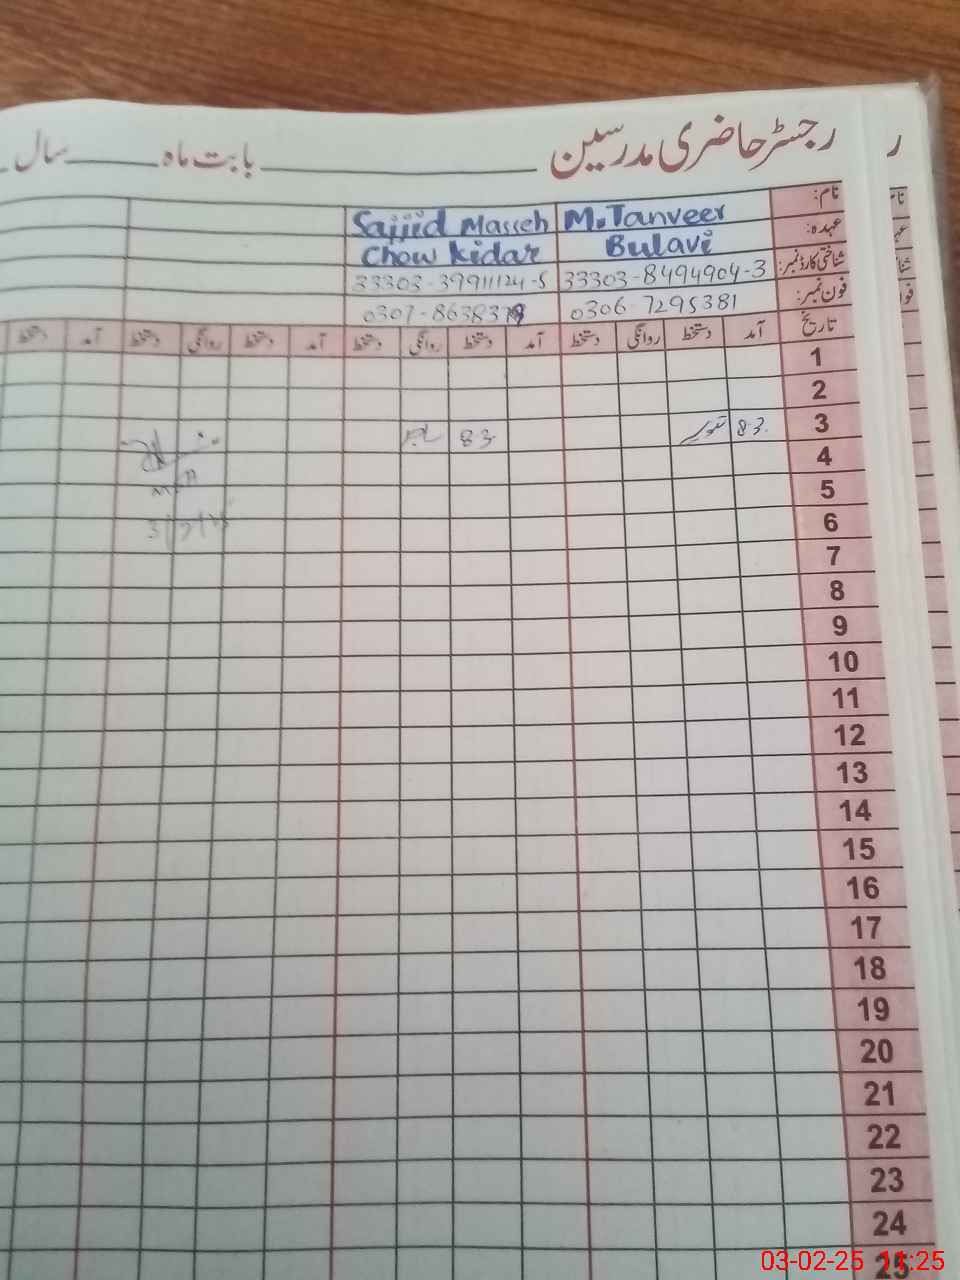 رجسٹر حاضری مدرسین ________ بابت ماہ ________ سال
نام: M. Tanveer Sajjid Masseh
عہدہ: Bulavi Chow Kidar
شناختی کارڈ نمبر: 33303-8494904-3 33303-39911124-5
فون نمبر: 0306-7295381
تاریخ آمد دستخط روانگی دستخط آمد دستخط روانگی دستخط آمد دستخط روانگی دستخط آمد دستخط
1
2
3 8.3 تنویر 8.3
4
5
6
7
8
9
10
11
12
13
14
15
16
17
18
19
20
21
22
23
24
25
03-02-25 11:25